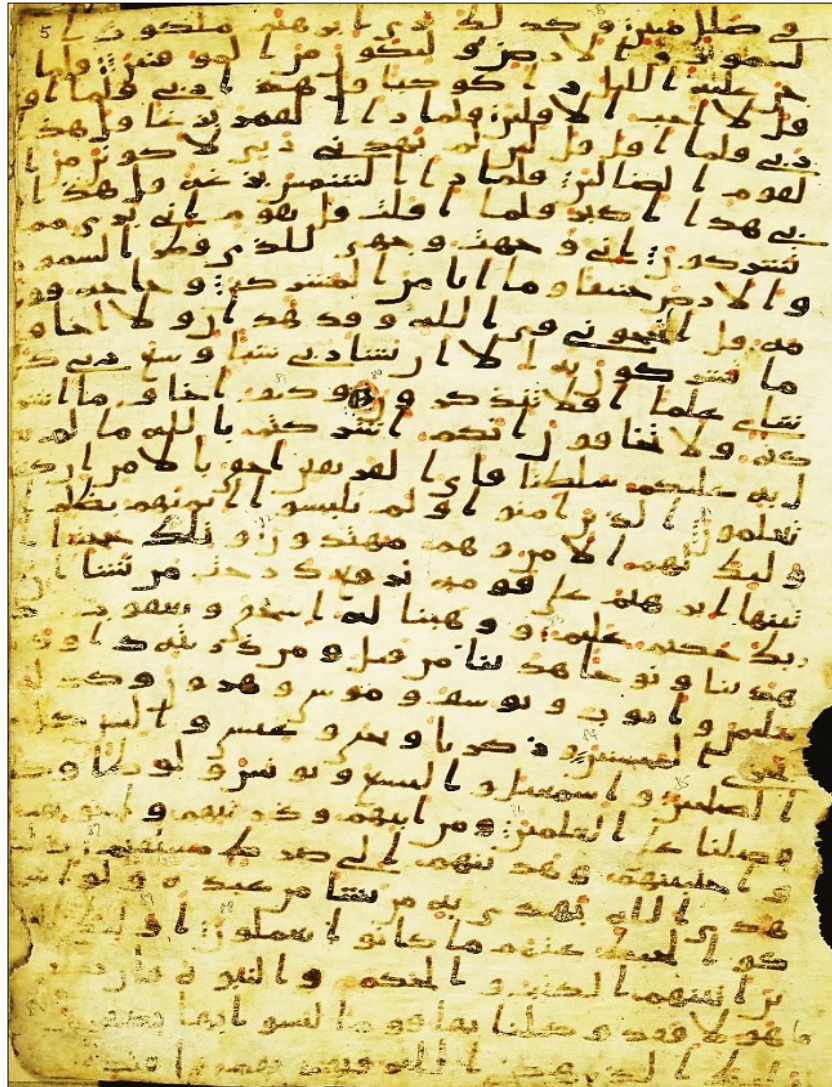 5
في ضلل مبين وكذلك نري ابرهيم ملكوت ا
لسموت والارض وليكون من الموقنين فلما
جن عليه الليل را كوكبا قل هذا ربي فلما افل
قل لا احب الافلين فلما راا القمر بزغا قل هذا
ربي فلما افل قل لين لم يهدني ربي لاكونن من ا
لقوم الضالين فلما راا الشمس بزغة قل هذا ر
بي هذا اكبر فلما افلت قل يقوم اني بري مما
تشركون اني وجهت وجهي للذي فطر السموت
والارض حنيفا وما انا من المشركين وحاجه قو
مه قل اتحجوني في الله وقد هدان ولا اخاف
ما تشركون به الا ان يشا ربي شيا وسع ربي كل
شاي علما افلا تتذكرون وكيف اخاف ما اشر
كتم ولا تخافون انكم اشركتم بالله ما لم ينز
ل به عليكم سلطنا فاي الفريقين احق بالامن ان كنتم
تعلمون الذين امنوا ولم يلبسوا ايمنهم بظلم ا
وليك لهم الامن وهم مهتدون وتلك حجتنا ا
تينها ابرهيم على قومه نرفع درجت من نشا ان ر
بك حكيم عليم ووهبنا له اسحق ويعقوب كلا
هدينا ونوحا هدينا من قبل ومن ذريته داود وس
ليمن وايوب ويوسف وموسى وهرون وكذلك
نجزي المحسنين وزكريا ويحيى وعيسى والياس كل من
الصلحين واسمعيل واليسع ويونس ولوطا وكلا
فضلنا على العلمين ومن ابيهم وذريتهم واخونهم
واجتبينهم وهدينهم الى صرط مستقيم ذلك
هدى الله يهدي به من يشا من عبده ولو اشر
كوا لحبط عنهم ما كانوا يعملون اوليك الذ
ين اتينهم الكتب والحكم والنبوة فان يكفر ب
ها هولا فقد وكلنا بها قوما ليسوا بها بكفرين
اوليك الذين هدى الله فبهديهم اقتد